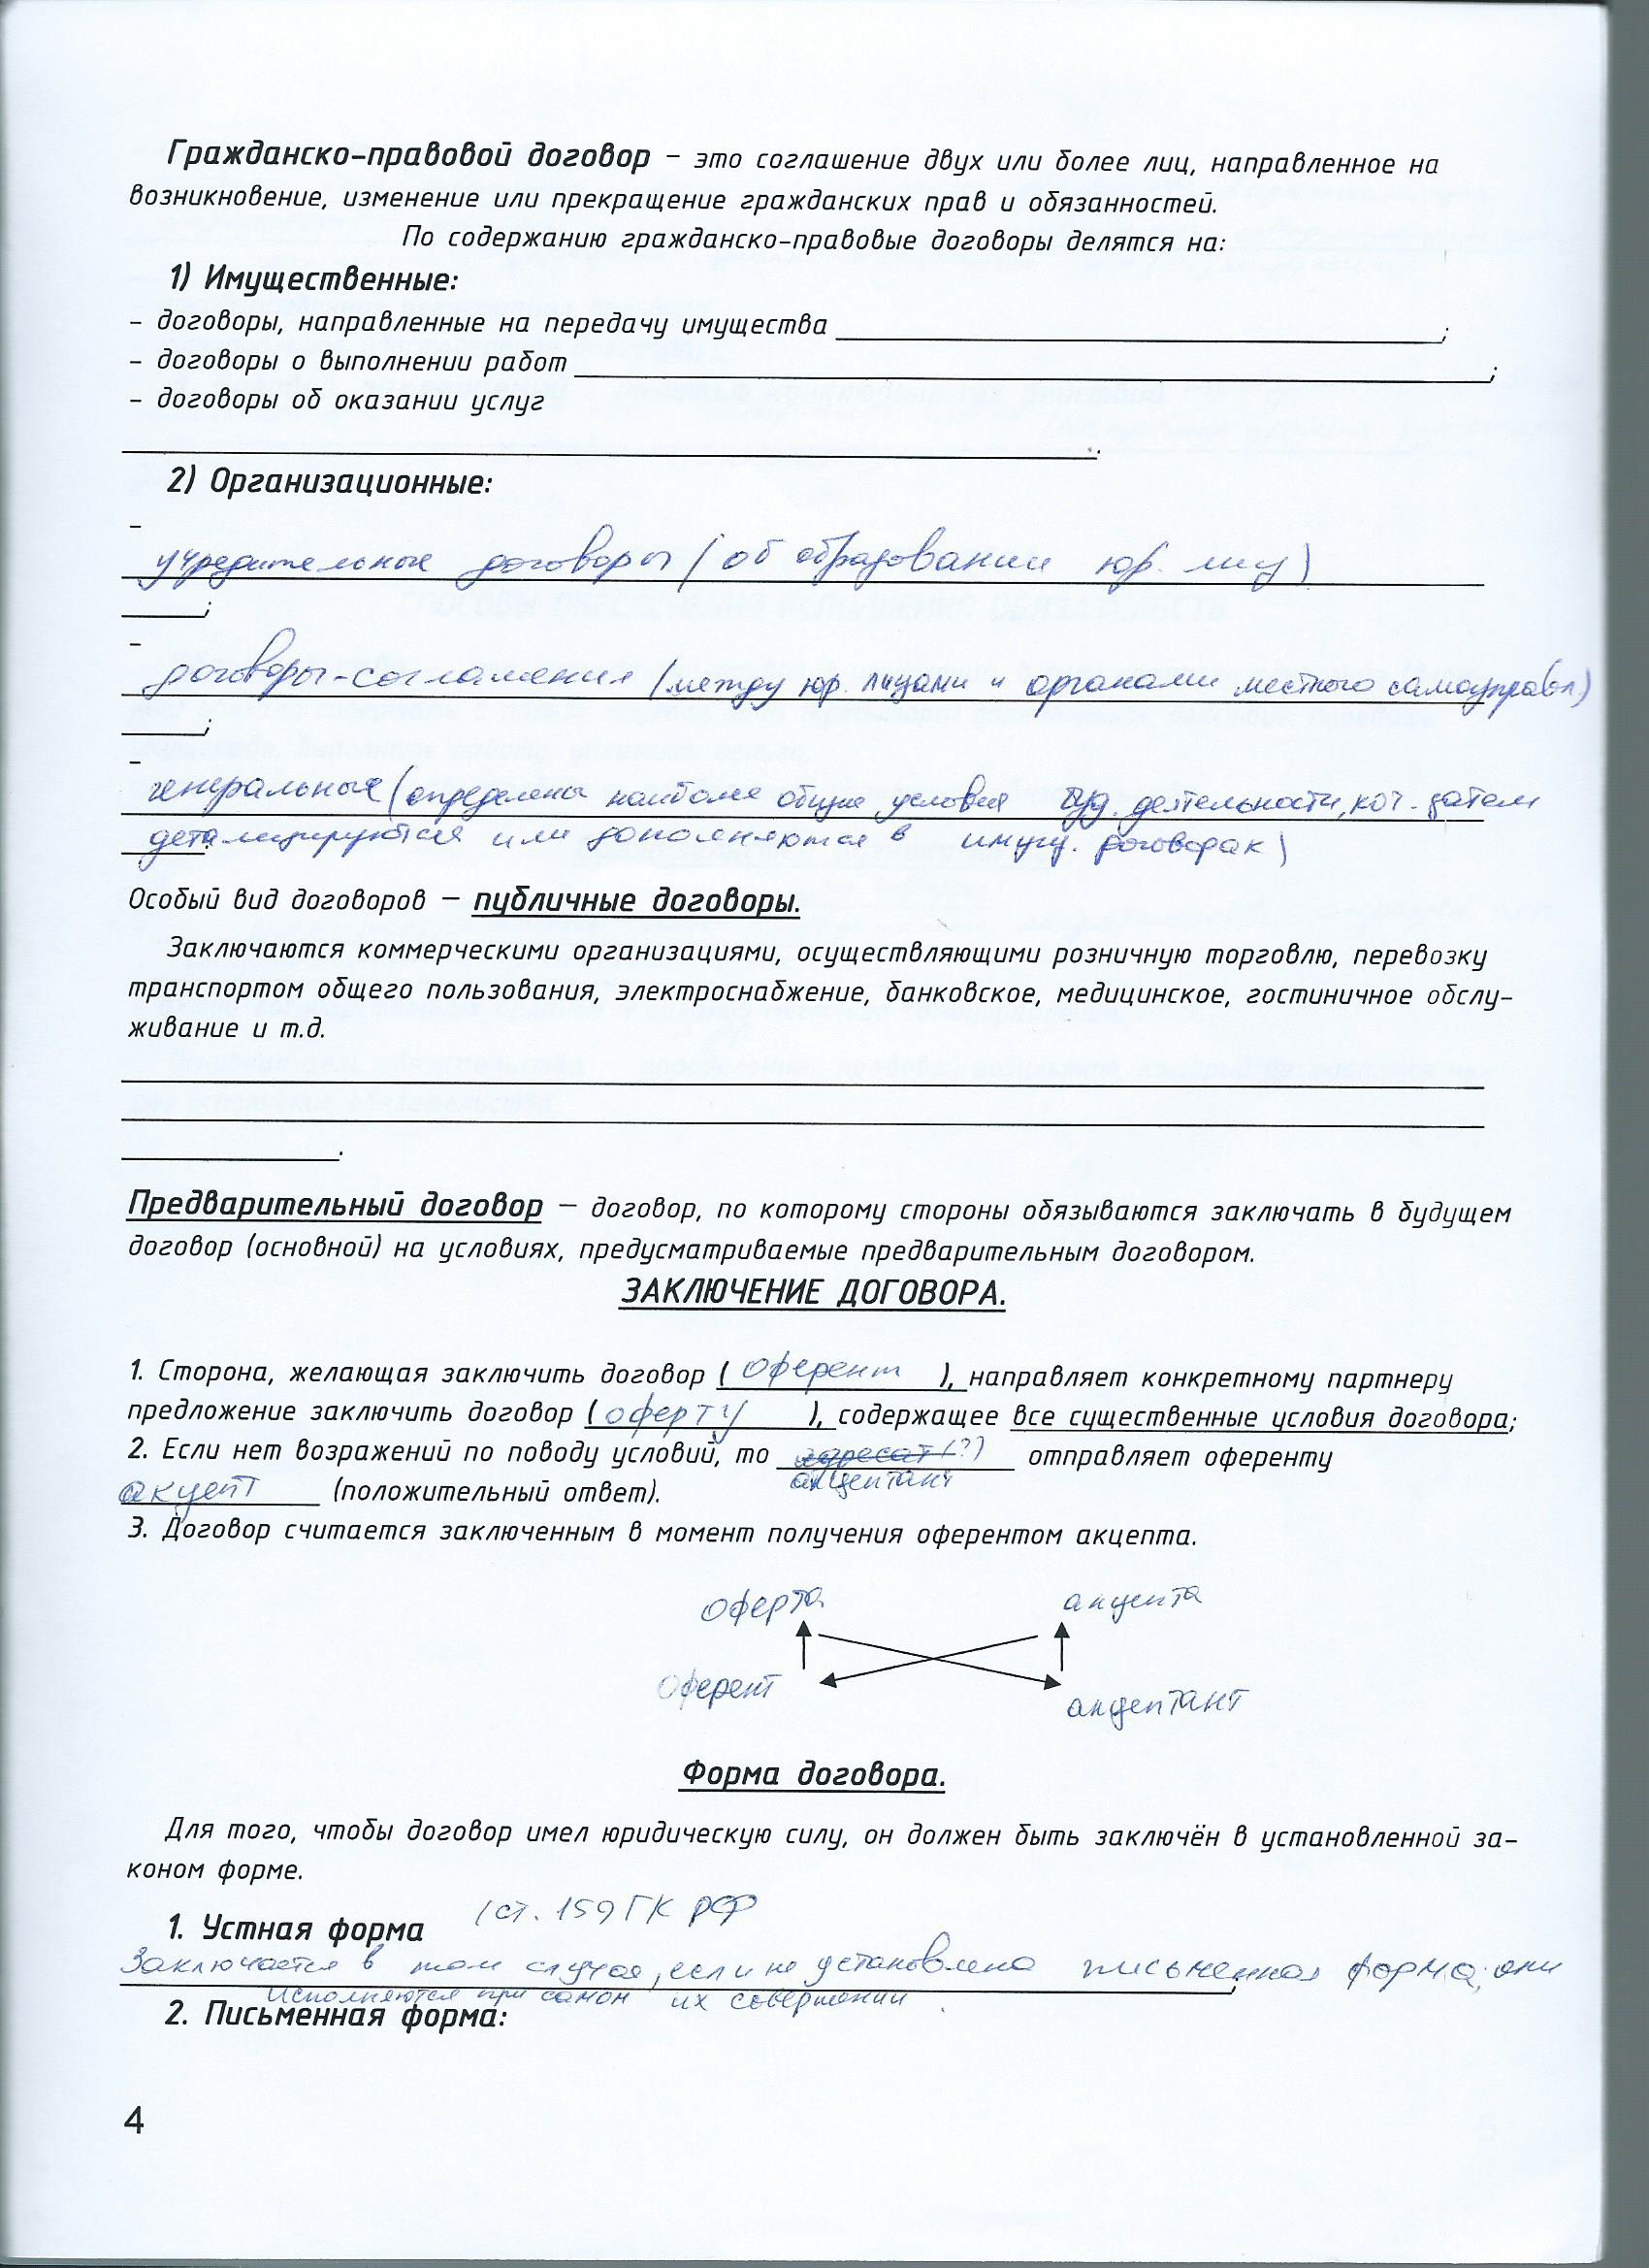 Гражданско-правовой договор – это соглашение двух или более лиц, направленное на
возникновение, изменение или прекращение гражданских прав и обязанностей.
По содержанию гражданско-правовые договоры делятся на:
1) Имущественные:
– договоры, направленные на передачу имущества ;
– договоры о выполнении работ ;
– договоры об оказании услуг
.
2) Организационные:
–
учредительные договоры (об образовании юр. лиц)
;
–
договоры-соглашения (между юр. лицами и органами местного самоуправл.)
;
–
генеральные (определены наиболее общие условия буд. деятельности, кот. затем
детализируются или дополняются в имущ. договорах)
Особый вид договоров – публичные договоры.
Заключаются коммерческими организациями, осуществляющими розничную торговлю, перевозку
транспортом общего пользования, электроснабжение, банковское, медицинское, гостиничное обслу-
живание и т.д.
.
Предварительный договор – договор, по которому стороны обязываются заключать в будущем
договор (основной) на условиях, предусматриваемые предварительным договором.
ЗАКЛЮЧЕНИЕ ДОГОВОРА.
1. Сторона, желающая заключить договор ( оферент ), направляет конкретному партнеру
предложение заключить договор ( оферту ), содержащее все существенные условия договора;
2. Если нет возражений по поводу условий, то адресат (?) отправляет оференту
акцептант
акцепт (положительный ответ).
3. Договор считается заключенным в момент получения оферентом акцепта.
оферта акцепта
оферент акцептант
Форма договора.
Для того, чтобы договор имел юридическую силу, он должен быть заключён в установленной за-
коном форме.
1. Устная форма (ст. 159 ГК РФ
Заключается в том случае, если не установлена письменная форма; они
исполняются при самом их совершении.
2. Письменная форма:
4